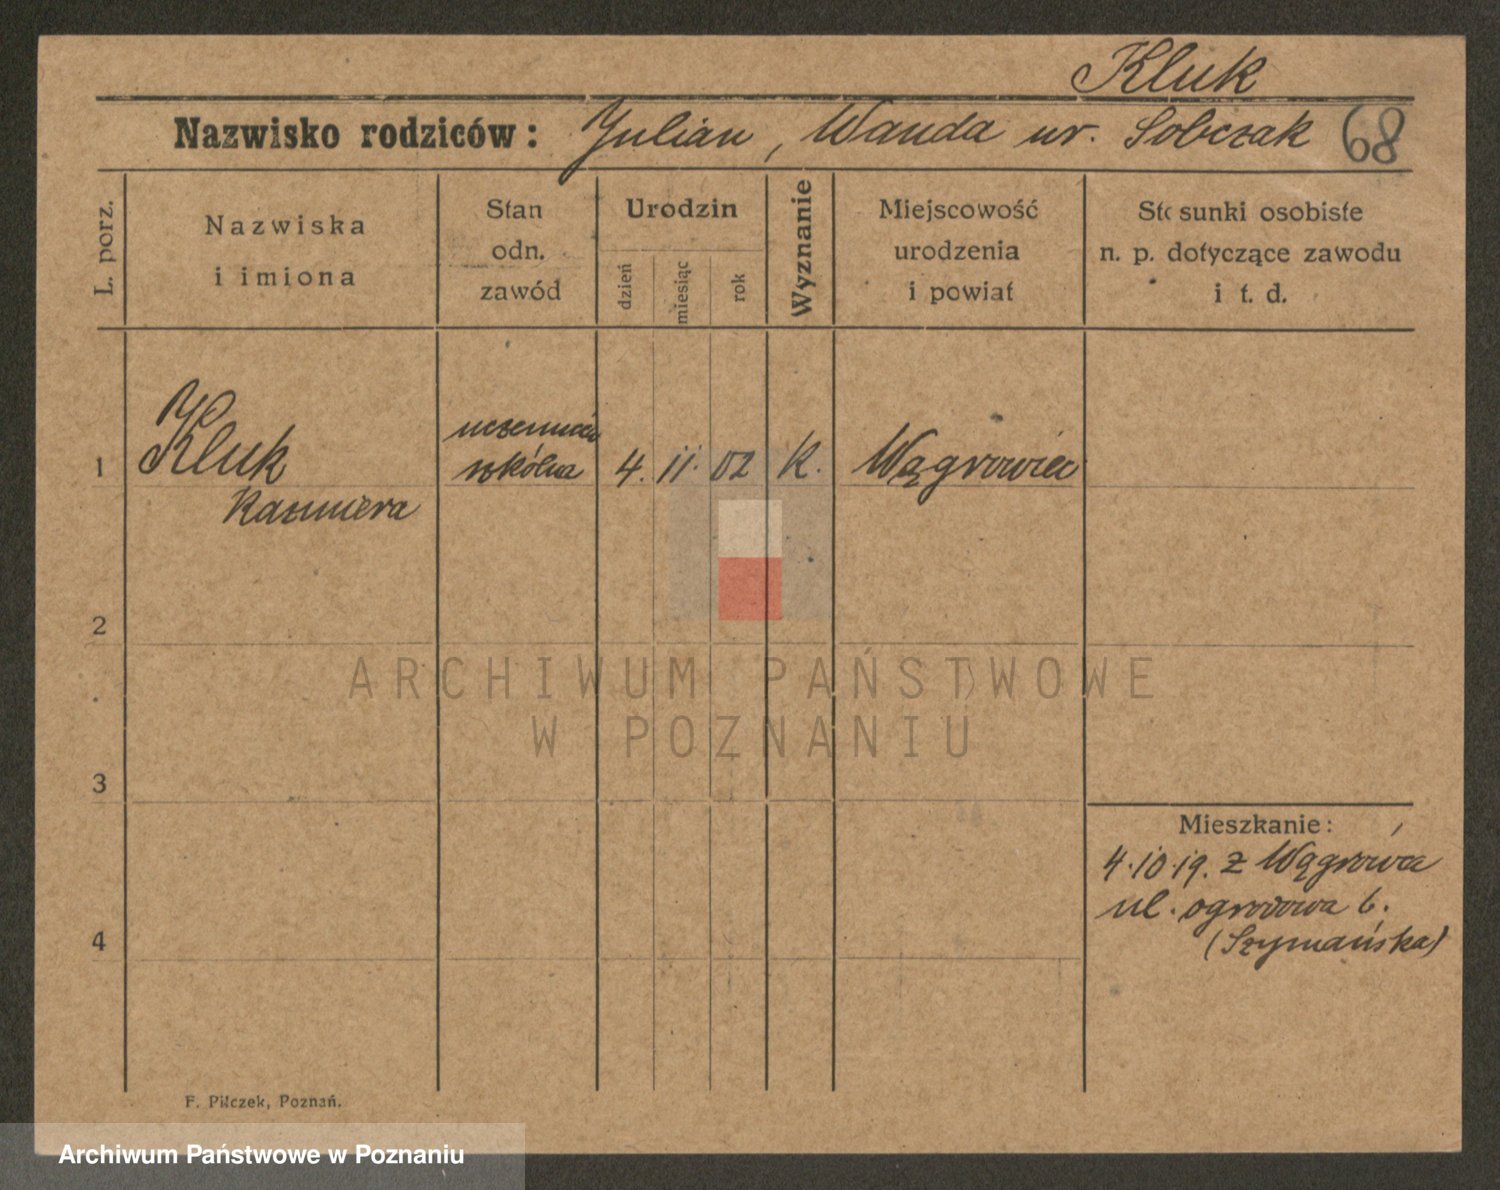 Kluk
Nazwisko rodziców: Julian, Wanda ur. Sobczak 68
L. porz.
Nazwiska
i imiona
Stan
odn.
zawód
Urodzin
dzień
miesiąc
rok
Wyznanie
Miejscowość
urodzenia
i powiat
Stosunki osobiste
n. p. dotyczące zawodu
i t. d.
1
Kluk
Kazmiera
uczennica
szkólna
4. 11. 02
K.
Wągrowiec
2
3
4
Mieszkanie:
4.10.19. z Wągrówca
ul. ogrodowa 6.
(Szymańska)
F. Pilczek, Poznań.
ARCHIWUM PAŃSTWOWE
W POZNANIU
Archiwum Państwowe w Poznaniu